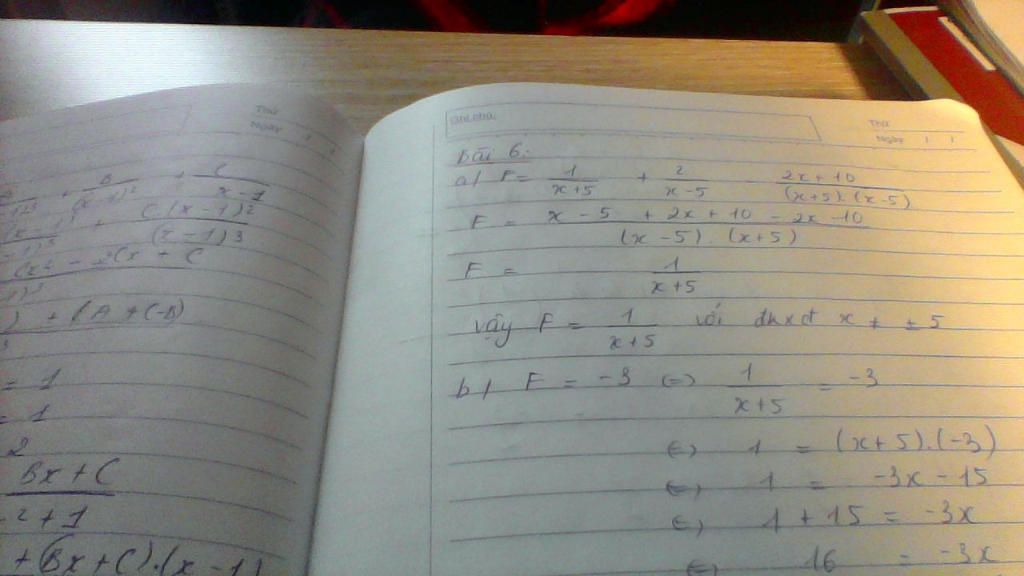 Thứ
Ngày
B/(x-1)² + C/(x-1)
C.(x-1)²/(x-1)3
) + (A + C-B)
= 1
= 1
2
Bx + C
2 + 1
+ (Bx + C).(x-1)
Ghi chú
Thứ
Ngày
Bài 6:
a/ F = 1/(x+5) + 2/(x-5) 2x+10/((x+5).(x-5))
F = (x - 5 + 2x + 10 - 2x - 10)/((x-5).(x+5))
F = 1/(x+5)
Vậy F = 1/(x+5) với đkxđ x ≠ ± 5
b/ F = -3 <=> 1/(x+5) = -3
<=> 1 = (x+5).(-3)
<=> 1 = -3x - 15
<=> 1 + 15 = -3x
<=> 16 = -3x